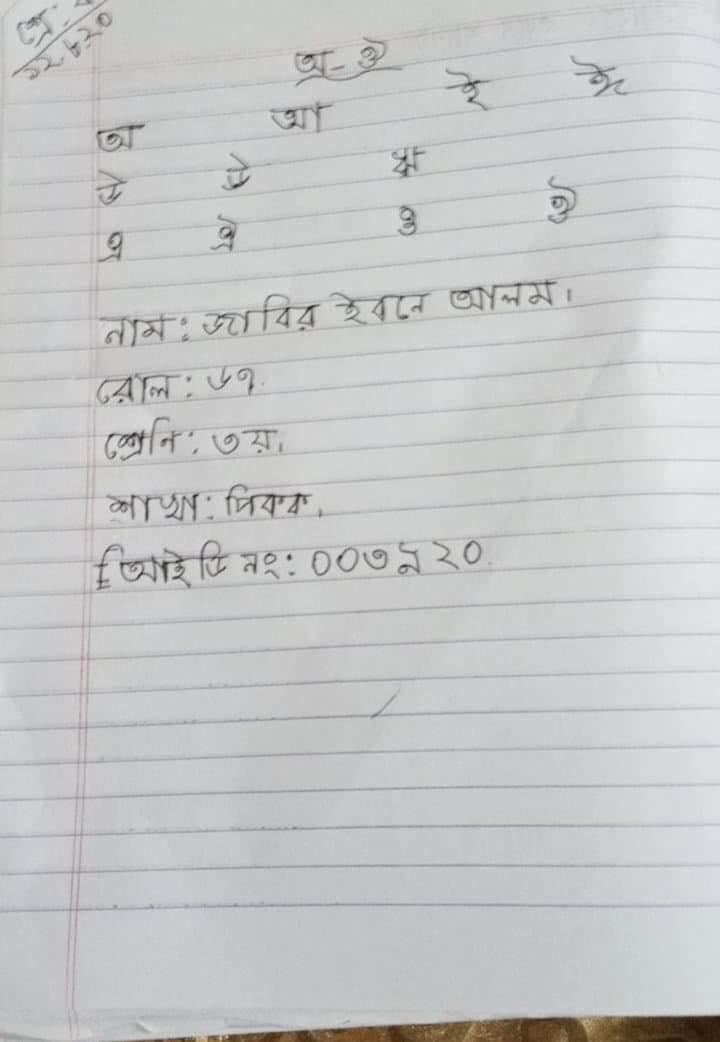 অ-ঔ
অ আ ই ঈ
উ ঊ ঋ
এ ঐ ও ঔ
নাম: জাবির ইবনে আলম।
রোল: ৬৭.
শ্রেনি: ৩য়.
শাখা: পিকক.
আইডি নং: ০০৩৯২০.